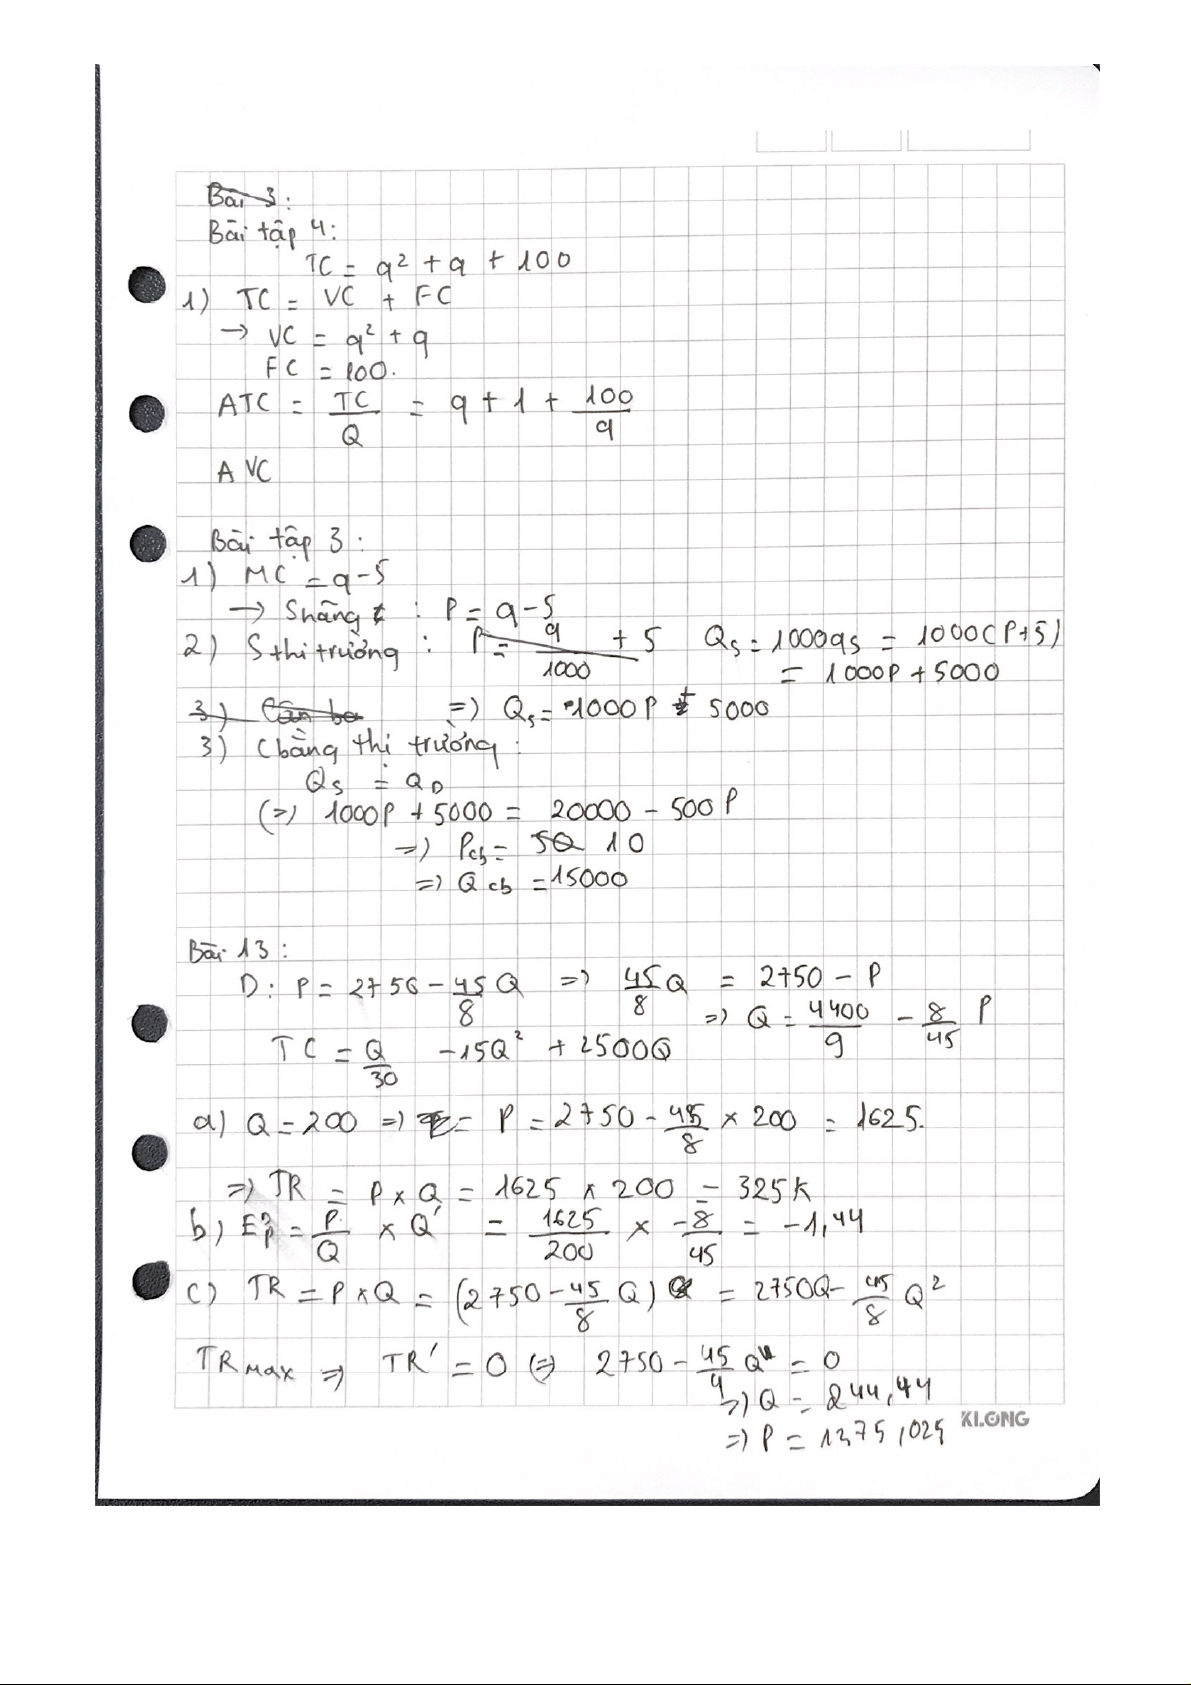 Bài 3:
Bài tập 4:
TC = q² + q + 100
1) TC = VC + FC
→ VC = q² + q
FC = 100.
ATC = TC/Q = q + 1 + 100/q
AVC
Bài tập 3:
1) MC = q - 5
→ S hãng : P = q - 5
2) S thị trường : P = q/1000 + 5 Qs = 1000qs = 1000(P+5)
= 1000P + 5000
3) Cân ba => Qs = 1000P + 5000
3) Cbằng thị trường:
Qs = QD
(=) 1000P + 5000 = 20000 - 500P
=) Pcb = 10
=) Qcb = 15000
Bài 13:
D: P = 2750 - 45/8 Q => 45/8 Q = 2750 - P
=> Q = 4400/9 - 8/45 P
TC = Q/30 - 15Q² + 2500Q
a) Q = 200 => P = 2750 - 45/8 × 200 = 1625.
=> TR = P × Q = 1625 × 200 = 325K
b) = P/Q × Q' = 1625/200 × -8/45 = -1,44
c) TR = P×Q = (2750 - 45/8 Q) Q = 2750Q - 45/8 Q²
TRmax => TR' = 0 (=) 2750 - 45/4 Q = 0
=) Q = 244,44
=) P = 1375,025
KLONG